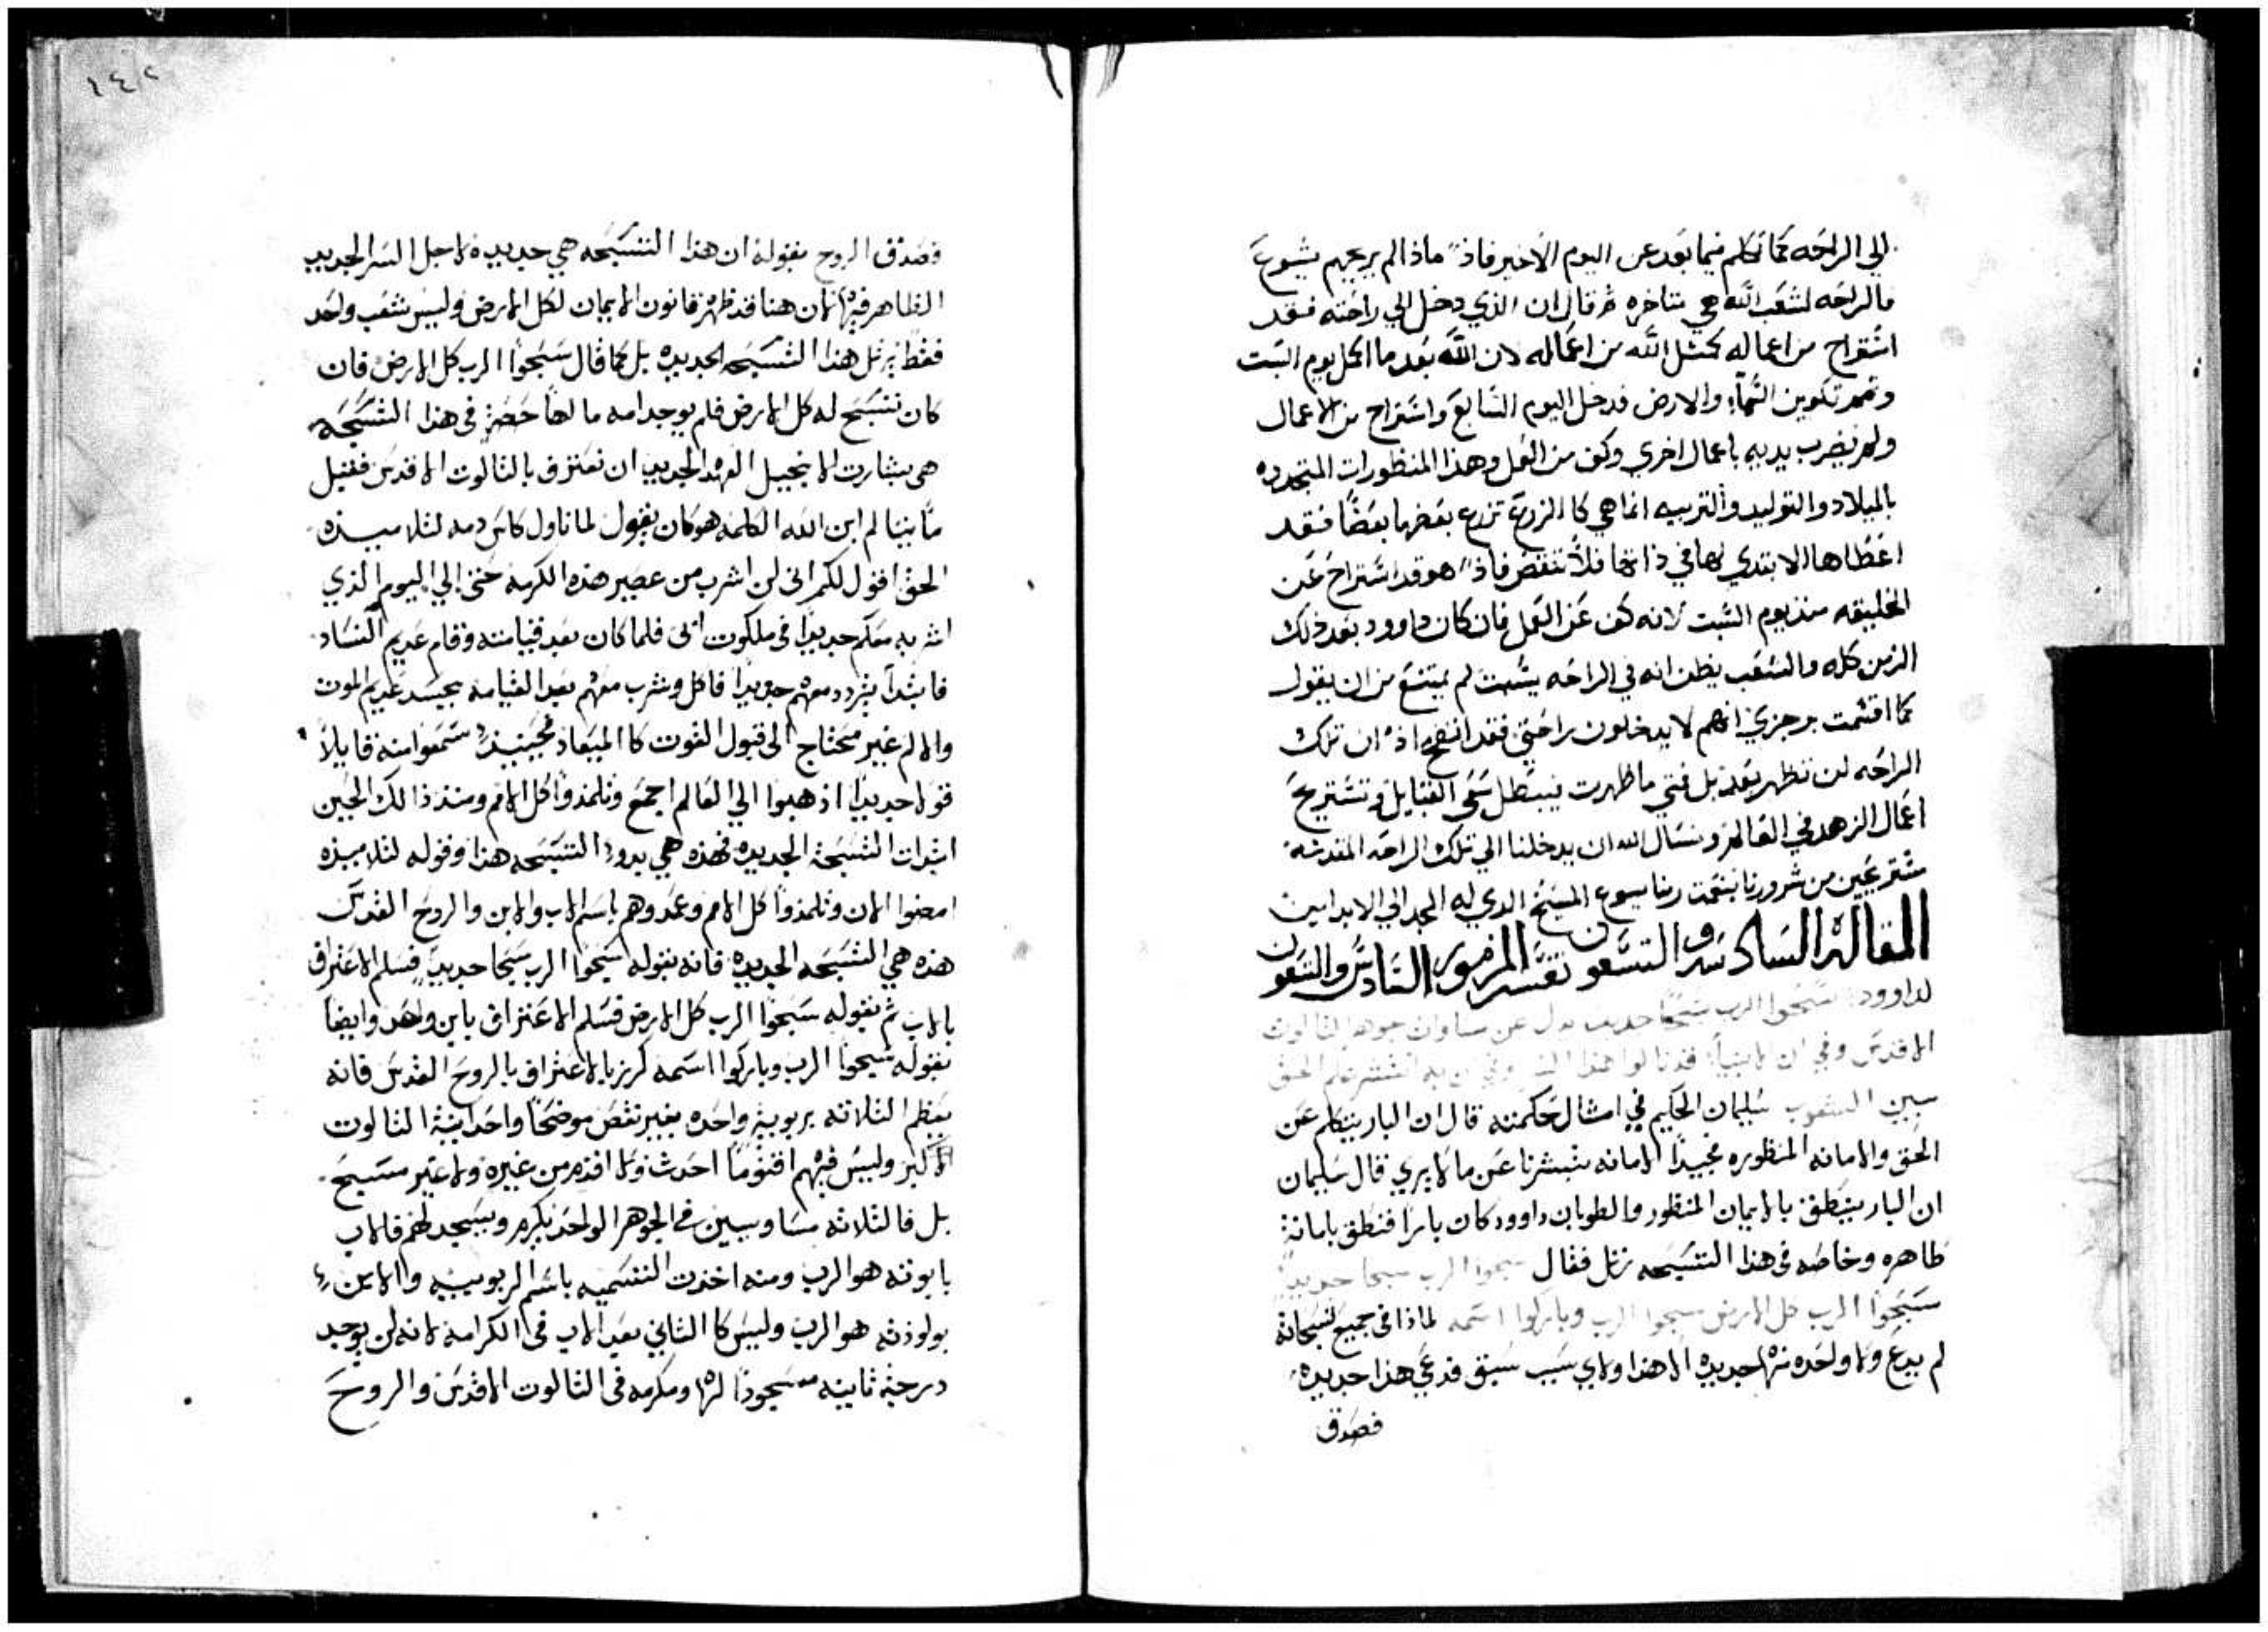 الي الراحه كما تكلم فيما بعد عن اليوم الاخير فاذ ماذا لم يريحهم يشوع
فالراحه لشعب الله هي متاخره ثم قال ان الذي دخل الي راحته فقد
استراح من اعماله كمثل الله من اعماله لان الله بعد ما اكمل يوم السبت
وتمم تكوين السماء والارض فدخل اليوم السابع واستراح من الاعمال
ولم يضرب بيديه باعمال اخري وكف من العمل وهذا المنظورات المتجدده
بالميلاد والتوليد والتربيه انما هي كالزرع تزرع بعضها بعضا فقد
اعطاها الابتدي لها في ذاتها فلا تنقص فاذ هو قد استراح عن
الخليقه منذ يوم السبت لانه كف عن العمل فان كان داوود بعد ذلك
الزمن كله والشعب يظن انه في الراحه يشمت لم يمتنع من ان يقول
كما اقسمت برجزي انهم لا يدخلون راحتي فقد اتضح اذ ان تلك
الراحه لن تظهر بعد بل فمتي ما ظهرت فيبطل سعي القبايل وتستريح
اعمال الزهد في العالم ونسال الله ان يدخلنا الي تلك الراحه المقدسه
مستريحين من شرورنا بنعمت ربنا يسوع المسيح الدي له المجد الي الابد امين
المقاله السادسه والتسعون تفسر المزمور السادس والتسعون
لداوود سبحوا الرب سبحا جديد يدل عن مساوات جوهر الثالوت
الاقدس وفي ان الانبيا قد نالوا هذا السر وفي ان به انتشر علم الحق
سبين الشعوب سليمان الحكيم في امثال حكمته قال ان البار يتكلم عن
الحق والامانه المنظوره مجيدا الامانه تبشرنا عن ما لا يري فقال سليمان
ان البار ينطق بالايمان المنظور والطوبان داوود كان بارا فنطق بامانة
ظاهره وخاصه في هذا التسبحه يرتل فقال سبحوا الرب سبحا جديدا
سبحوا الرب كل الارض سبحوا الرب وباركوا اسمه لماذا في جميع تسبحاته
لم يدع ولا واحده منها جديده الا هذا ولاي سبب سبق فدعي هذا جديده
فصدق
١٤٢
فصدق الروح بقوله ان هذا التسبحه هي جديده لاجل السر الجديد
الظاهر فيها لان هنا قد ظهر قانون الايمان لكل الارض وليس شعب واحد
فقط يرتل هذا التسبحه الجديده بل كما قال سبحوا الرب كل الارض فان
كان تسبح له كل الارض فلم يوجد امه ما لها حصة في هذا التسبحه
هي بشارت الانجيل العهد الجديد ان نعترف بالثالوت الاقدس فقبل
ما يتالم ابن الله الكلمه هو كان يقول لما ناول كاس دمه لتلاميذه
الحق اقول لكم اني لن اشرب من عصير هذه الكرمه حتي الي اليوم الذي
اشربه معكم جديدا في ملكوت ابي فلما كان بعد قيامته وقام عديم الفساد
فابتدا يتردد معهم جديدا فاكل وشرب معهم بعد القيامه بجسد عديم الموت
والالم غير محتاج الي قبول القوت كالميعاد فحينيذ سمعوا منه قايلا
قولا جديدا اذهبوا الي العالم اجمع وتلمذوا كل الامم ومنذ ذالك الحين
ابتدات التسبحة الجديده فهذه هي بدو التسبحه هذا وقوله لتلاميذه
امضوا الان وتلمذوا كل الامم وعمدوهم باسم الاب والابن والروح القدس
هذه هي التسبحه الجديده فانه بقوله سبحوا الرب سبحا جديد فسلم الاعتراف
بالاب ثم بقوله سبحوا الرب كل الارض فسلم الاعتراف بابن واحد وايضا
بقوله سبحوا الرب وباركوا اسمه كرز بالاعتراف بالروح القدس فانه
يعظم الثلاته بربوبية واحده بغير نقص موضحا واحدانية الثالوت
الاكبر وليس فيهم اقنوما احدث ولا اقدم من غيره ولا غير مسبح
بل فالثلاثه مساويين في الجوهر الواحد يكرم ويسجد لهم فالاب
بابوته هو الرب ومنه اخذت التسميه باسم الربوبيه والابن
بولوذته هو الرب وليس كالثاني بعد الاب في الكرامه لانه لن يوجد
درجة ثانيه مسجودا لها ومكرمه في الثالوت الاقدس والروح